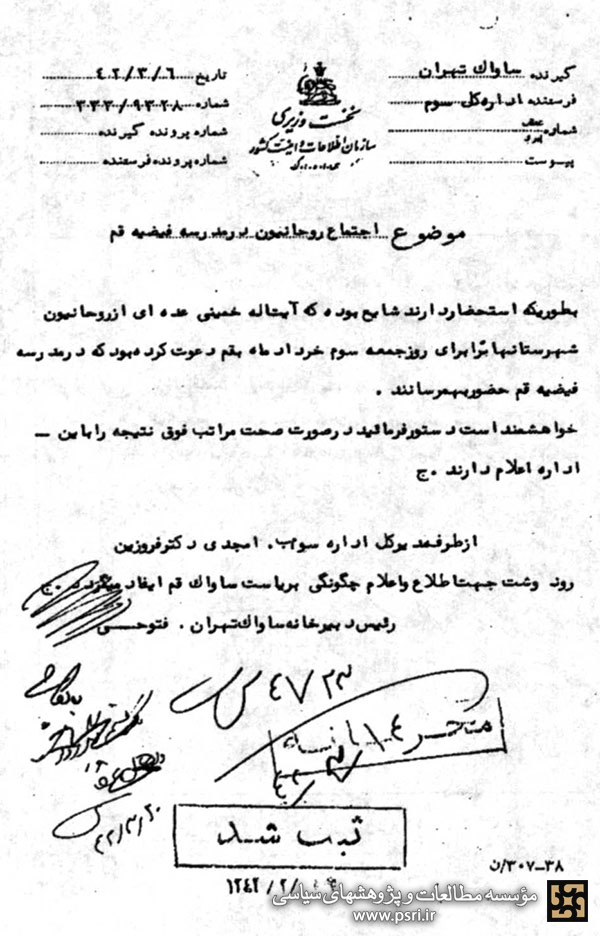 گیرنده ساواك تهران
فرستنده اداره کل سوم
شماره
پیوست
نخست وزیری
سازمان اطلاعات و امنیت کشور
س.ا.و.ا.ك
تاریخ ۴۲/۳/۶
شماره ۳۳۳/۹۳۲۸
شماره پرونده گیرنده
شماره پرونده فرستنده
موضوع اجتماع روحانیون در مدرسه فیضیه قم
بطوریکه استحضار دارند شایع بوده که آیت‌اله خمینی عده ای از روحانیون
شهرستانها را برای روز جمعه سوم خرداد ماه بقم دعوت کرده بود که در مدرسه
فیضیه قم حضور بهمرسانند .
خواهشمند است دستور فرمائید در صورت صحت مراتب فوق نتیجه را باین —
اداره اعلام دارند .ج
از طرف مدیرکل اداره سوم. امجدی دکتر فروزین
رونوشت جهت اطلاع و اعلام چگونگی بریاست ساواك قم ایفاد میگردد .ج
رئیس دبیرخانه ساواك تهران . فتوحی
۴۲/۳/۲۰
ثبت شد
۳۸–۳۰۷/ن
موسسه مطالعات و پژوهشهای سیاسی
www.psri.ir